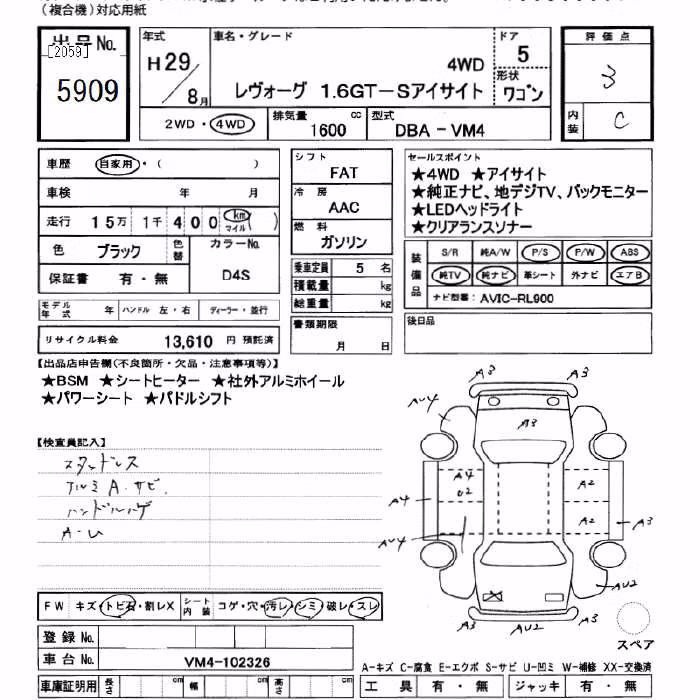 (複合機)対応用紙
出品No.
[2059]
5909
年式
H29/8月
車名・グレード
4WD
レヴォーグ 1.6GT-Sアイサイト
ドア
5
形状
ワゴン
評価点
3
内装
C
2WD・4WD
排気量
1600 cc
型式
DBA-VM4
車歴 自家用・( )
車検 年 月
走行 15万 1千 400 km マイル ( )
色 ブラック
色替
カラーNo.
D4S
保証書 有・無
シフト
FAT
冷房
AAC
燃料
ガソリン
乗車定員 5 名
積載量 kg
総重量 kg
書類期限
月 日
セールスポイント
★4WD ★アイサイト
★純正ナビ、地デジTV、バックモニター
★LEDヘッドライト
★クリアランスソナー
装備品
S/R 純A/W P/S P/W ABS
純TV 純ナビ 革シート 外ナビ エアB
ナビ型番: AVIC-RL900
後日品
モデル年式 年 ハンドル 左・右 ディーラー・並行
リサイクル料金 13,610 円 預託済
【出品店申告欄(不良箇所・欠品・注意事項等)】
★BSM ★シートヒーター ★社外アルミホイール
★パワーシート ★パドルシフト
【検査員記入】
スタッドレス
アルミ A. サビ.
ハンドルハゲ
A-U
A3 A3
AU4
A3
A4
U2
A4
A2
A2
A3
AU4
AU2
A3 AU2 A3
スペア
FW キズ・トビ石・割レX
シート内装 コゲ・穴・汚レ・シミ・破レ・スレ
登録No.
車台No. VM4-102326
車庫証明用 長さ cm 幅 cm 高さ cm
A-キズ C-腐食 E-エクボ S-サビ U-凹ミ W-補修 XX-交換済
工具 有・無 ジャッキ 有・無